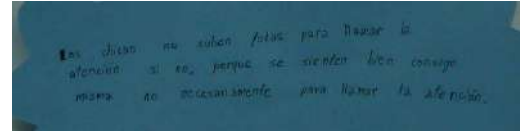 Las chicas no suben fotos para llamar la
atención si no, porque se sienten bien consigo
misma no necesariamente para llamar la atención.